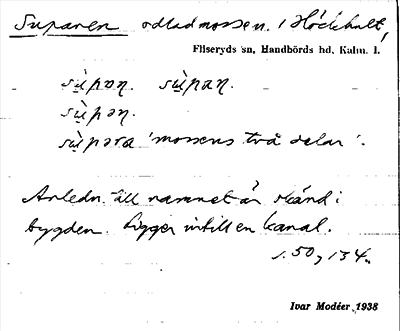 Suparen odlad mossen i Höckhult,
Fliseryds sn, Handbörds hd, Kalm. l.
sùpan. sùpan.
sùpən.
sùpəra 'mossens två delar'.
Anledn. till namnet är okänd i
bygden. Ligger intill en kanal.
s. 50, 134.
Ivar Modéer, 1938